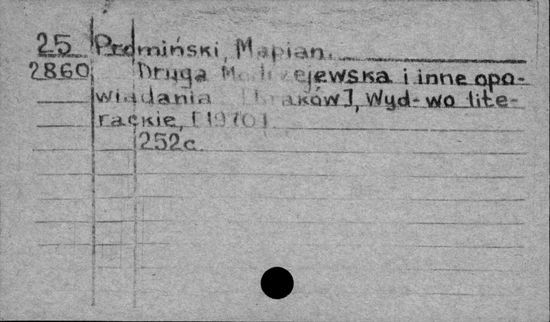 25 Promiński, Marian.
2860 Druga Modrzejewska i inne opo-
wiadania [Kraków], Wyd-wo lite-
rackie, [1970]
252c.